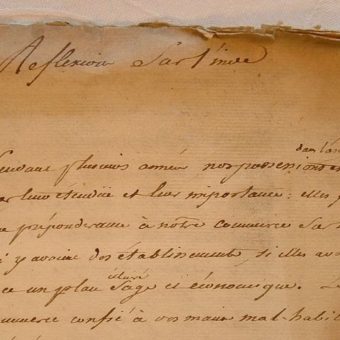 Reflexion Sur l'inde
dans l'in
Pendant plusieurs années nos possessions
leur étendue et leur importance elles
prépondérance à notre commerce
y avoient des établissements, si elles
un plan sage et économique.
été suivi
commerce confié à des mains mal habil